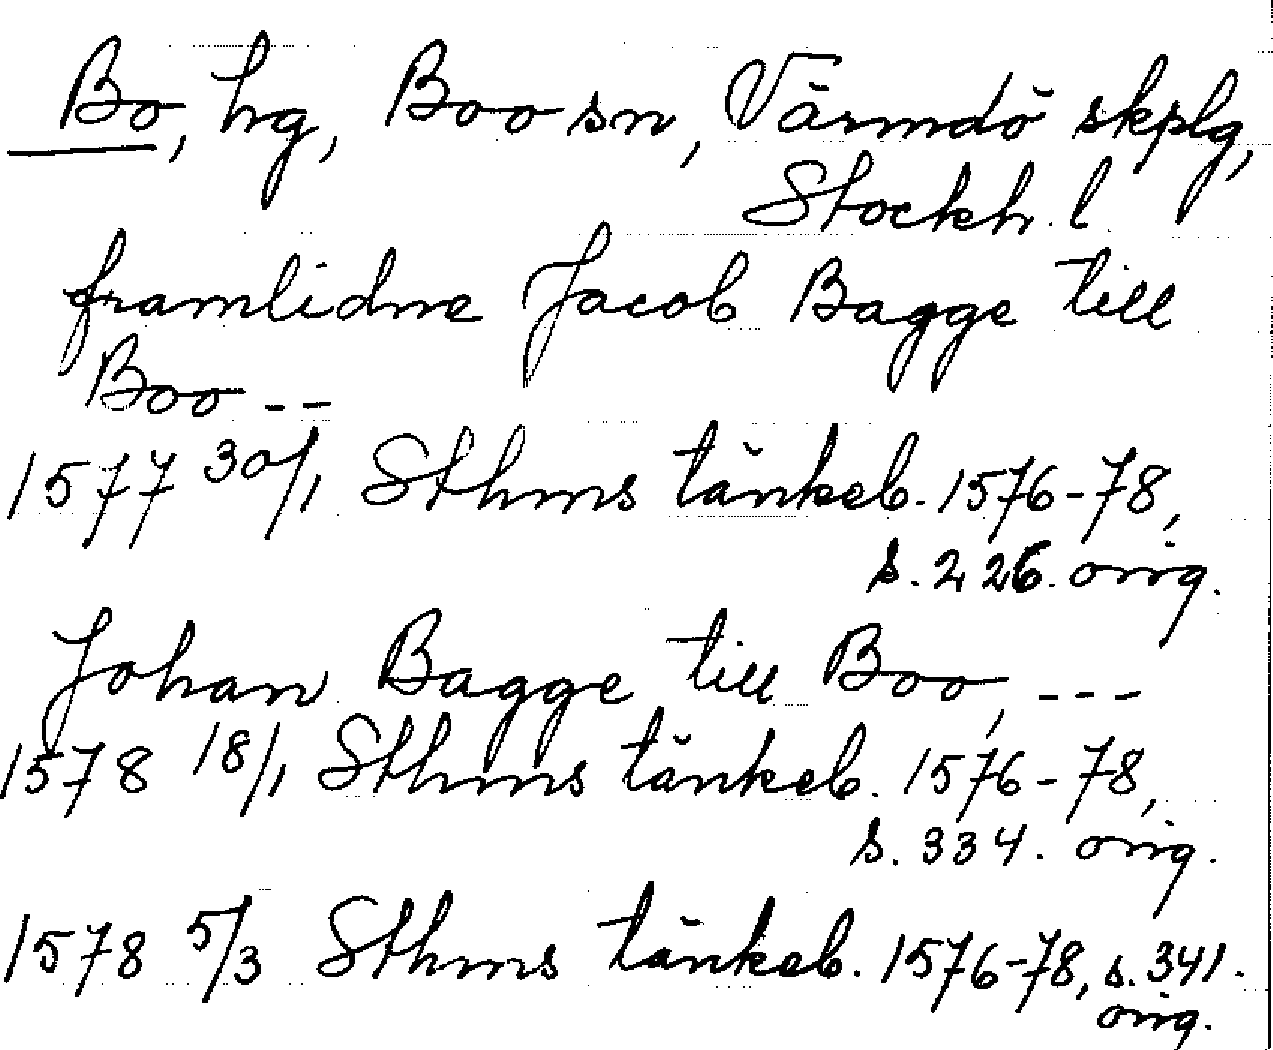 Bo, hg, Boo sn, Värmdö skplg,
Stockh. l
framlidne Jacob Bagge till
Boo --
1577 30/1 Sthms tänkeb. 1576-78,
s. 226. orig.
Johan Bagge till Boo, ---
1578 18/1 Sthms tänkeb. 1576-78,
s. 334. orig.
1578 5/3 Sthms tänkeb. 1576-78, s. 341.
orig.